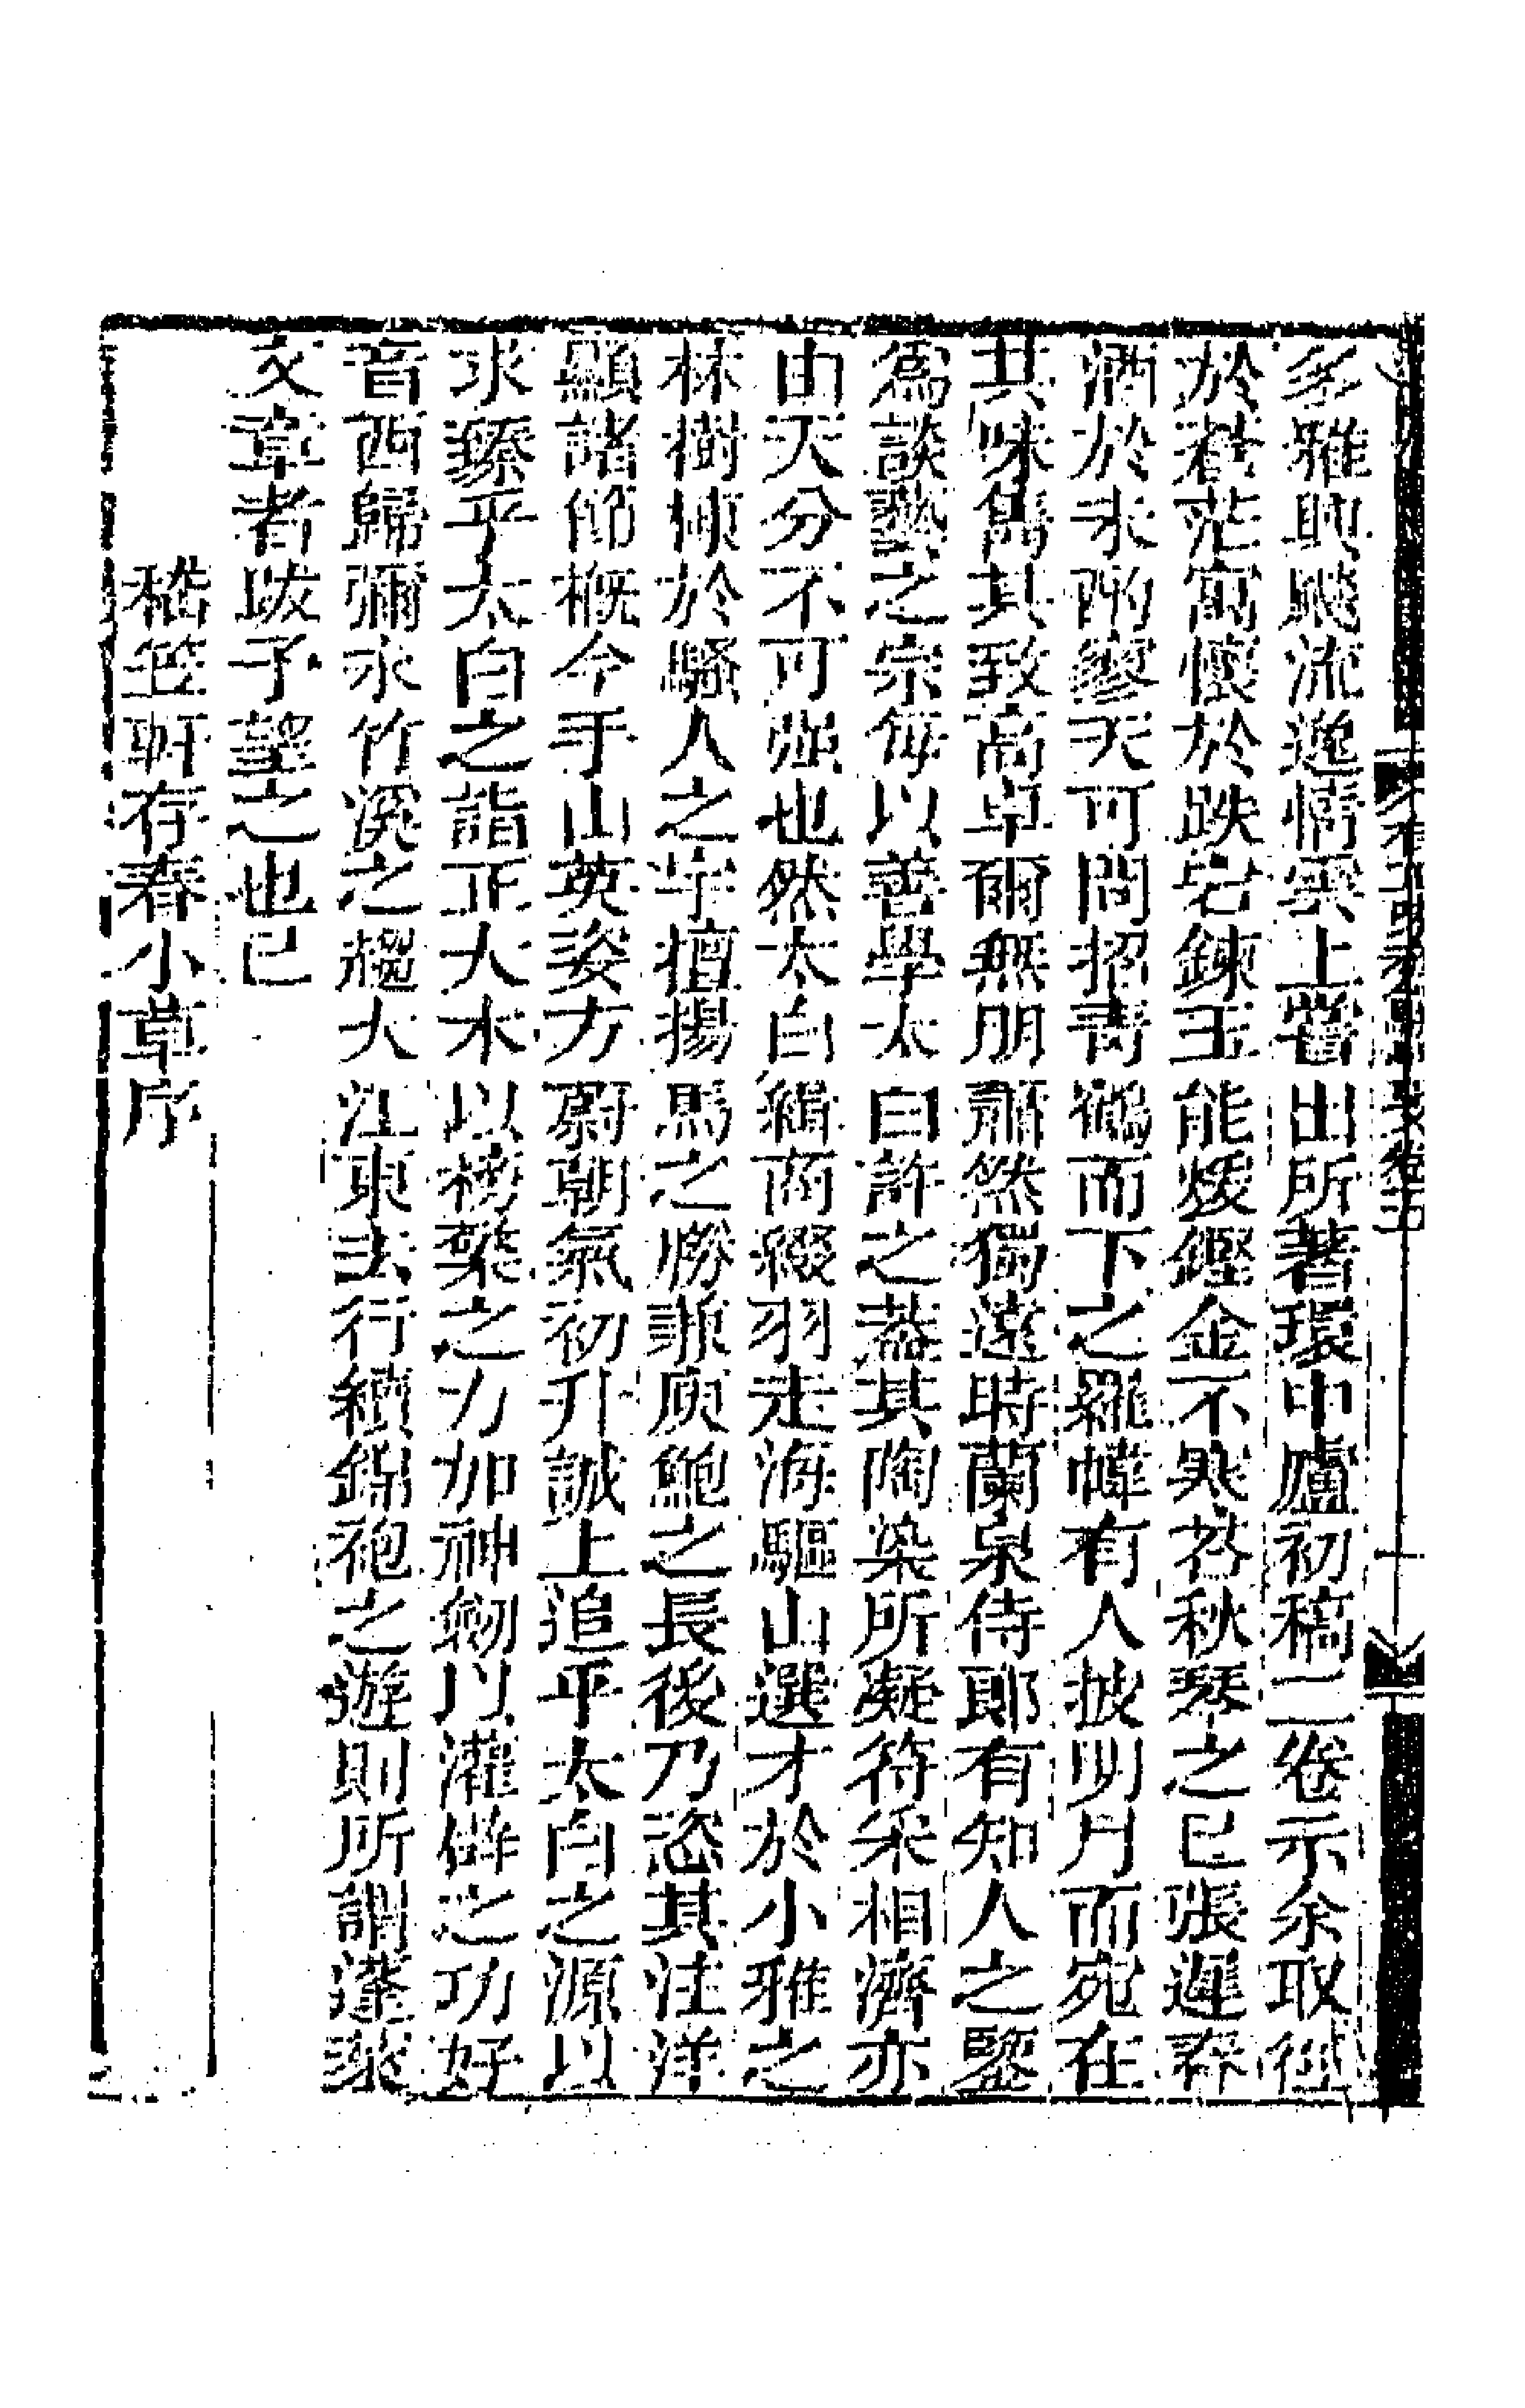 多雅興飈流逸情雲上嘗出所著環中廬初稿二卷示余取徑
於蒼茫寓懷於跌宕鍊玉能煖鏗金不寒苔秋琴之已張遲春
酒於未酌寥天可問招青鶴而下之羅幃有人披明月而宛在
其味雋其致高卓爾無朋翛然獨遠時蘭泉侍郎有知人之鑒
爲談藝之宗每以善學太白許之蓋其陶染所凝符采相濟亦
由天分不可强也然太白緝商綴羽走海驅山選才於小雅之
林樹楨於騷人之宇擅揚馬之勝兼庾鮑之長後乃恣其汪洋
顯諸節概今手山英姿方蔚朝氣初升誠上追乎太白之源以
求臻乎太白之詣正大木以榜檠之力加神劒以灌辟之功好
音西歸彌永竹溪之趣大江東去行續錦袍之遊則所謂蓬萊
文章者跋予望之也已
嵇笠軒存春小草序